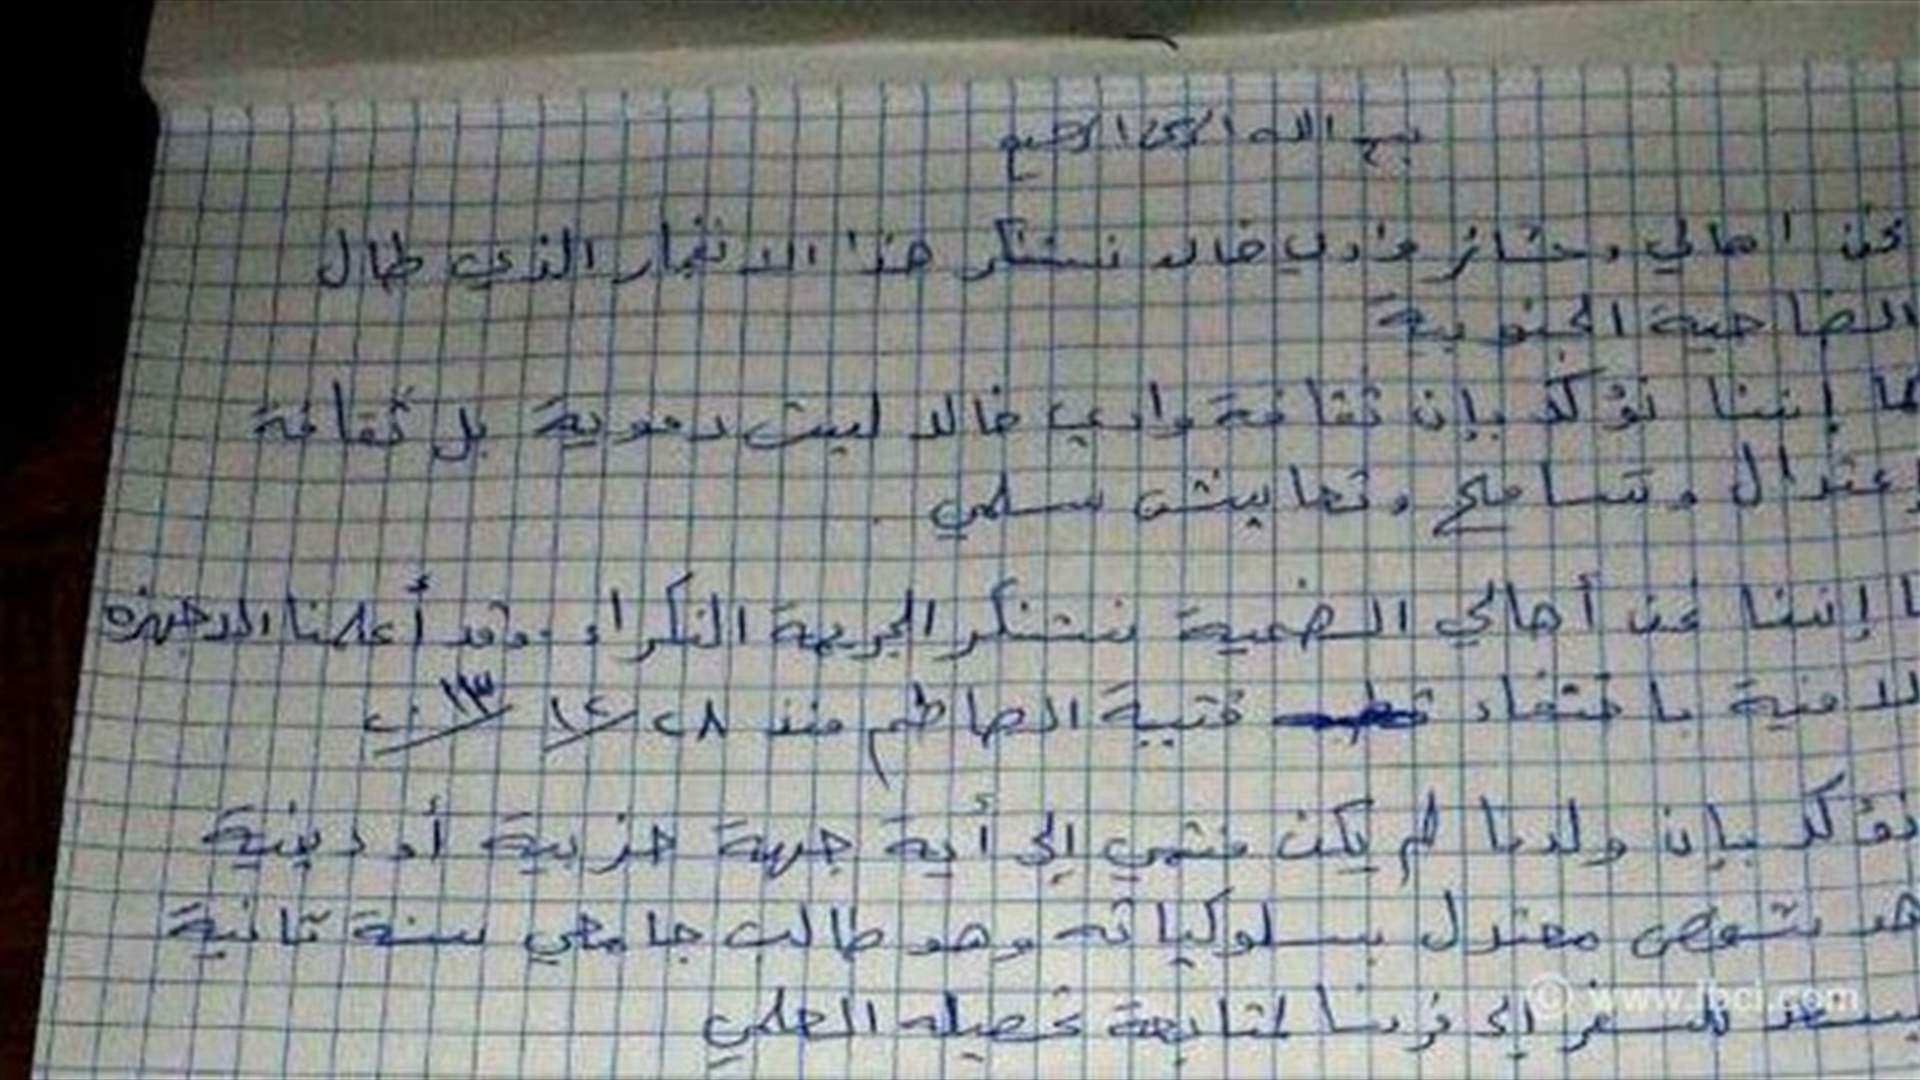 بسم الله الرحمن الرحيم
نحن اهالي وعشائر وادي خالد نستنكر هذا الانفجار الذي طال
الضاحية الجنوبية
كما إننا نؤكد بإن ثقافة وادي خالد ليست دموية بل ثقافة
إعتدال وتسامح وتعايش سلمي .
إننا نحن أهالي الضحية نستنكر الجريمة النكراء وقد أعلمنا الاجهزه
الامنية باختفاء قتيبة الصاطم منذ ٢٨ / ١٢ / ٢٠١٣
نؤكد بإن ولدنا لم يكن منتمي إلى أية جهة حزبية أو دينية
هو شخص معتدل بسلوكياته وهو طالب جامعي سنة تانية
يستعد للسفر إلى فرنسا لمتابعة تحصيله العلمي
© www.lbci.com